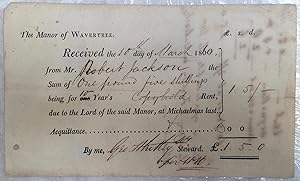 The Manor of Wavertree. £. s. d.
Received the 10th day of March 1860,
from Mr. Robert Jackson
the Sum of One pound five shillings
being for Year's Copyhold Rent, 1. 5/-
due to the Lord of the said Manor, at Michaelmas last.
Acquittance 0 0
By me, Steward. £ 1 5. 0